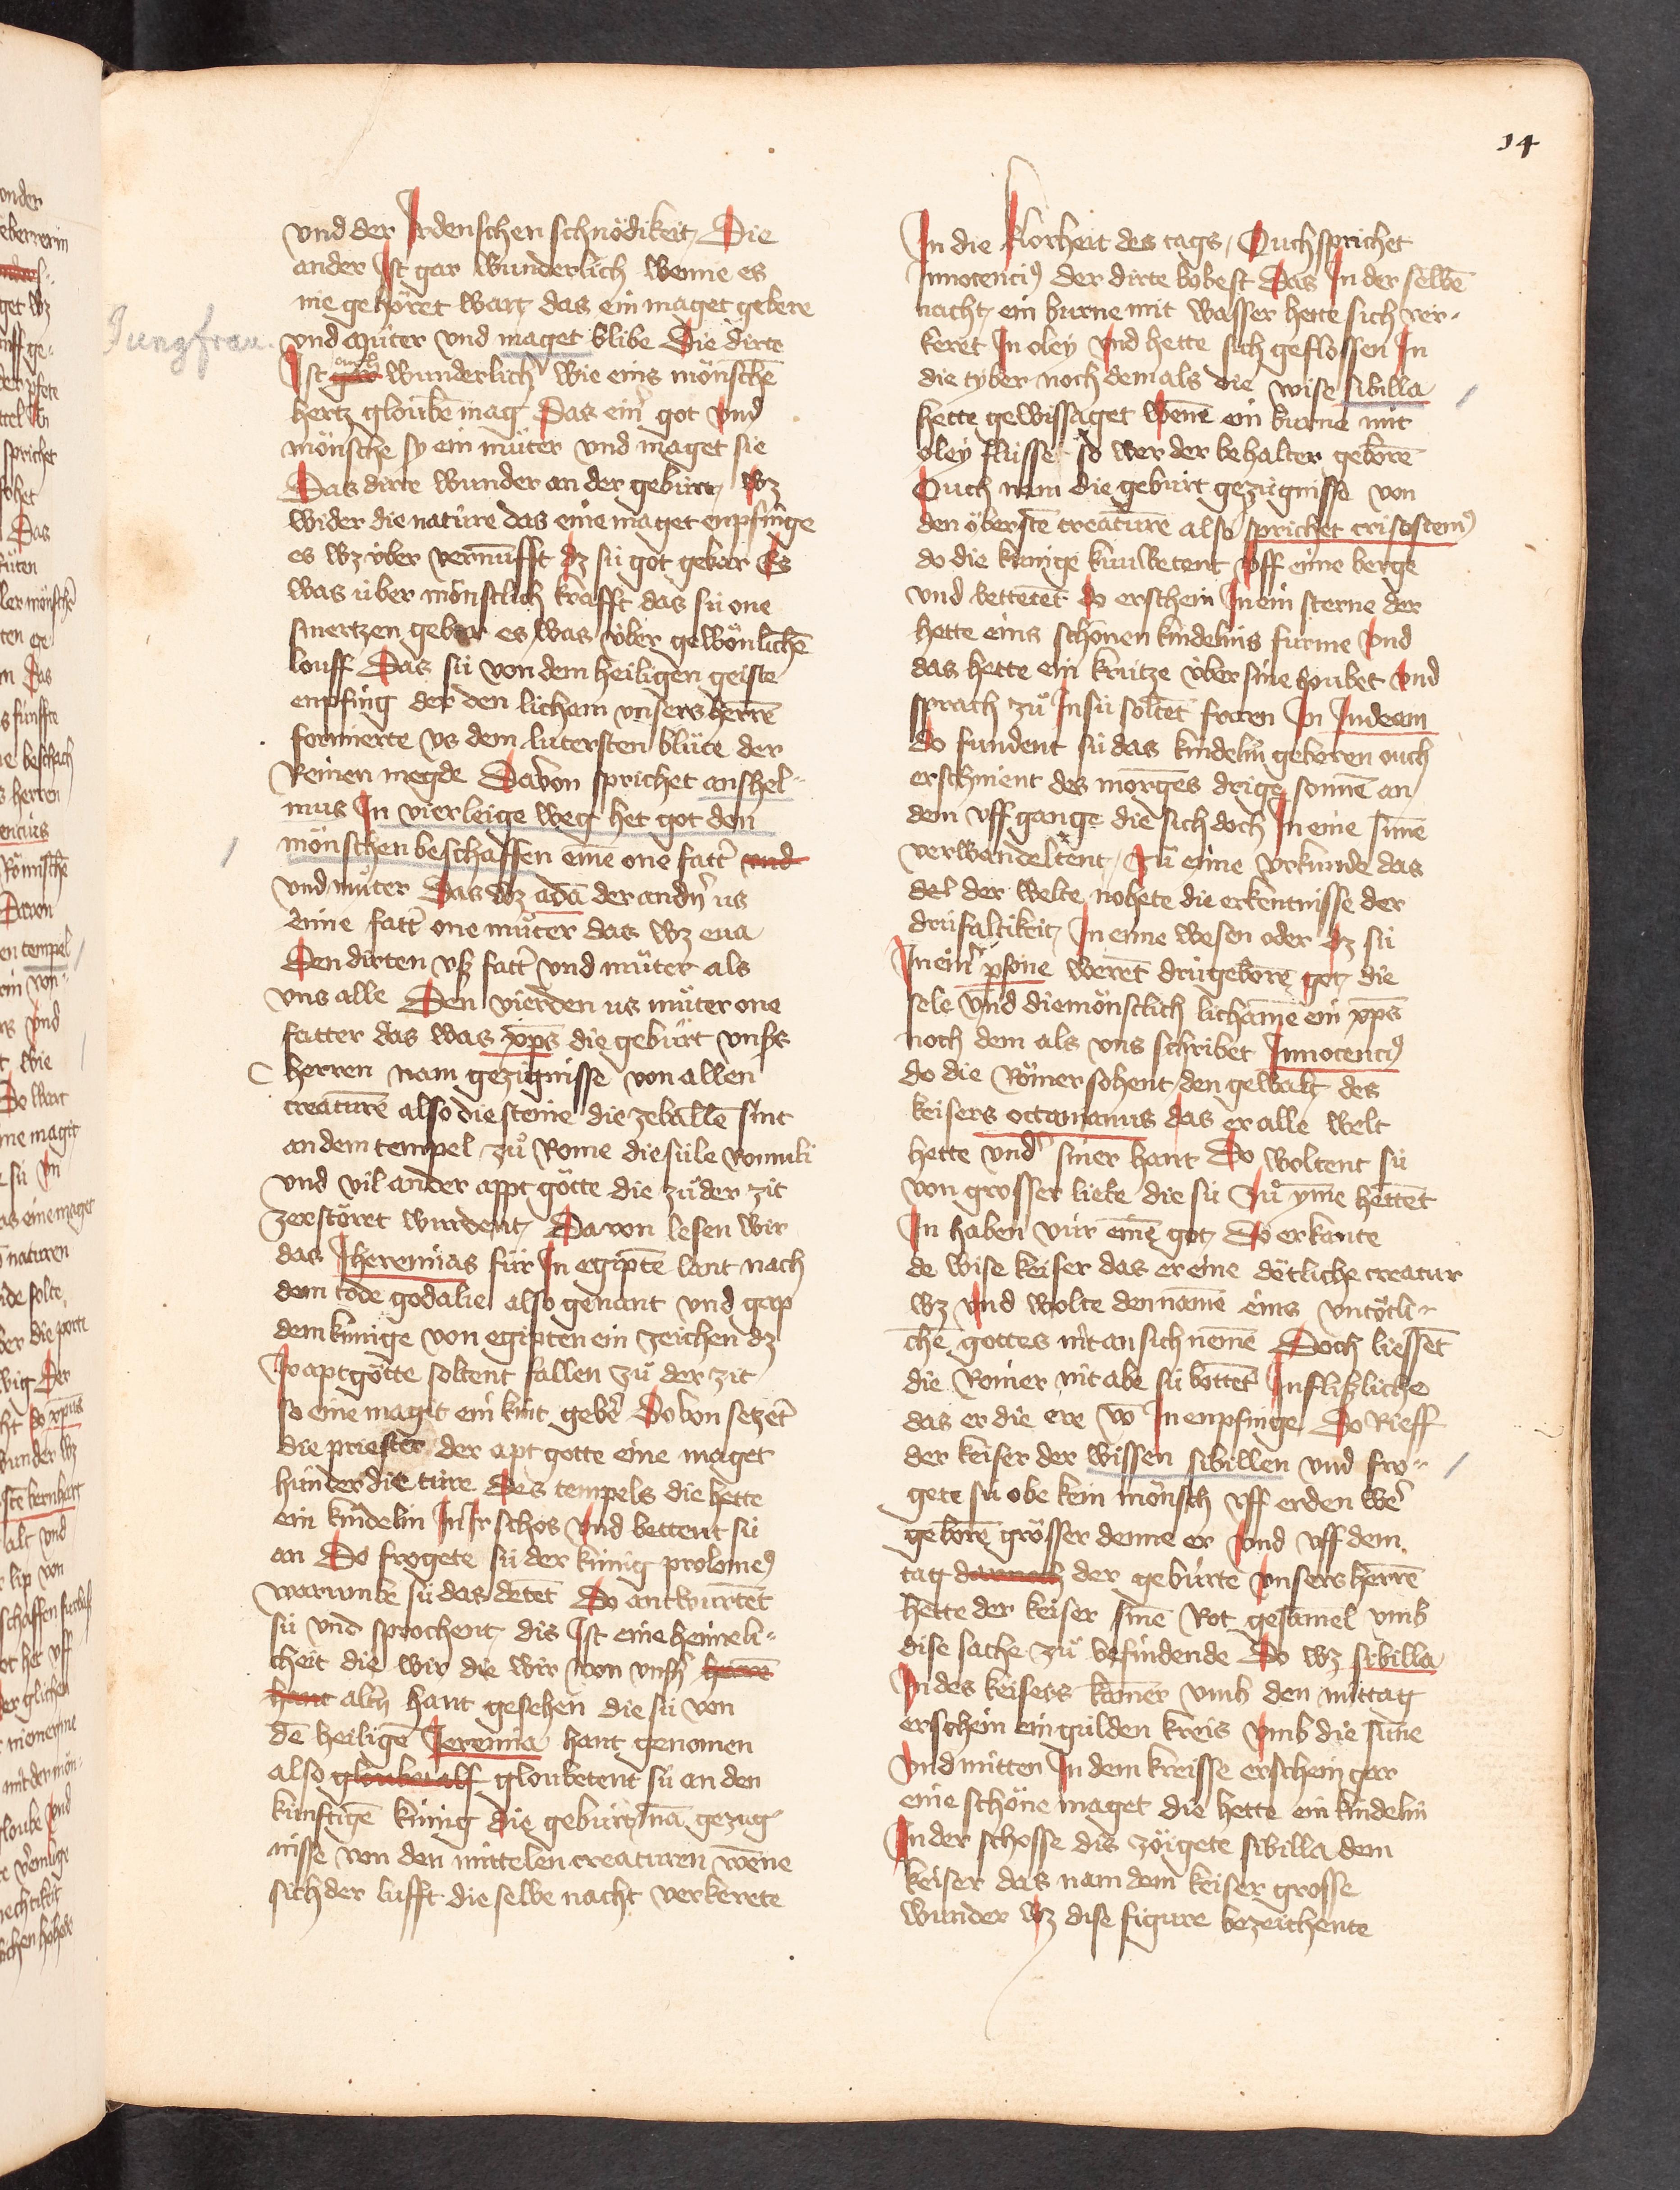 14
und der Irdenschen schnödikeit, Die
ander Ist gar wunderlich wenne es
nie gehöret wart das ein maget gebere
Jungfrau.
und můter und maget blibe Die dirte
Ist wunderlich wie eins mönschē
hertz gloubē mag Das ein got und
mönsche sy ein můter und maget sie
Das dirte wunder an der gebůrt, wz
wider die natůre das eine maget enpfinge
es wz über vernunfft dz sü got gebar Es
was über mönstlich krafft das sü one
smertzen gebar es was über gewönlichē
louff Das sü von dem heiligen geiste
enpfing der den licham unsers herrē
formierte vs dem lutersten blůte der
Reinen megde Davon sprichet anshel-
mus In vierleige weg het got den
mönschen beschaffen eine one fatt' und
und můter Das wz adā der and'n us
eime fatt' one můter das wz eua
Den dirten vß fatt' und můter als
uns alle Den vierden us můter one
fatter das was xp̄s die gebůrt unß's
herren nam gezügnisse von allen
creaturē also die steine die zeballē sint
an dem tempel zů Rome die süle romuli
und vil ander appt götte die zů der zit
zerstöret wurdent, Da von lesen wir
das Iheremias für In egiptē lant nach
dem tode godalie also genant und gap
dem künige von egipten ein zeichen dz
Ir aptgötte soltent fallen zů der zit
so eine magit ein kint geber Do von setzet'
die priester der apt gotte eine maget
hunder die türe des tempels die hette
ein kindelin In Ir schos und bettent sü
an Do frogete sü der künig ptolome9
warumbe sü das detēt Do antwurtēt
sü und sprochent dis Ist eine heimeli-
cheit die wir die wir von unß'n herrē
hant alt'n hant gesehen die sü von
dē heiligē Jeremia hant genomen
also gloubetent sü an den
künftigē künig die gebůrt nā gezüg
nisse von den mittelen creaturen wēne
sich der lufft die selbe nacht verkerete
In die klorheit des tags, Ouch sprichet
Innocenci9 der dirte bobest Das In der selwē
nacht, ein burne mit wasser hette sich ver-
keret In oley und hette sich geflossen In
die tyber noch dem als die wise sibilla
hette gewissaget wenē ein burne mit
oley flüsse so wer der behalter geborē
Ouch nam die gebůrt gezügnisse von
den öberstē creaturē also sprichet crisostem9
do die künige künwetent uff eine berge
und bettetēt do erschein In ein sterne der
hette eins schönen kindelins furme und
das hette ein krütze über sine houbet und
sprach zů In sü soltēt faren In Judeam
Do fundent sü das kindelin geboren ouch
erschinent des morgēs drige sonnē an
dem uffgange die sich doch In eine sunē
verwandeltent, Zů eine urkunde das
del der welte nohete die erkentnisse der
drüfaltikeit, In eime wesen oder dz sü
In ein' p̱sone werēt drü geborē got, die
sele und die mönstlich lichamē ein xp̄s
noch dem als uns schribet Innocenci9
do die Römer sohent, den gewalt, des
keisers octauianus das er alle welt
hette und' siner hant Do woltent sü
von grosser liebe die sü zů yme hettēt
In haben vür einē got, Do erkante
de wise keiser das er eine dötliche creatur
wz und wolte den namē eins untötli-
chē gottes nit an sich nemē Doch liessēt
die Römer nit abe sü bottēt In flißliche
das er die ere vō In enpfinge Do Rieff
der keiser der wissen sibillen und fro-
gete sü obe kein mönsch uff erden wer'
geborē grösser denne er und uff dem
tag darnoch der gebůrte unsers herrē
hette der keiser sinē Rot gesamēl umb
dise sache zů befindende Do wz sibilla
In des keisers kamer umb den mittag
erschein ein gulden kreis umb die sune
und mitten In dem kreisse erschein gar
eine schöne maget die hette ein kindelin
In der schosse dis zöigete sibilla dem
keiser das nam dem keiser grosse
wunder wz dise figure bezeichente